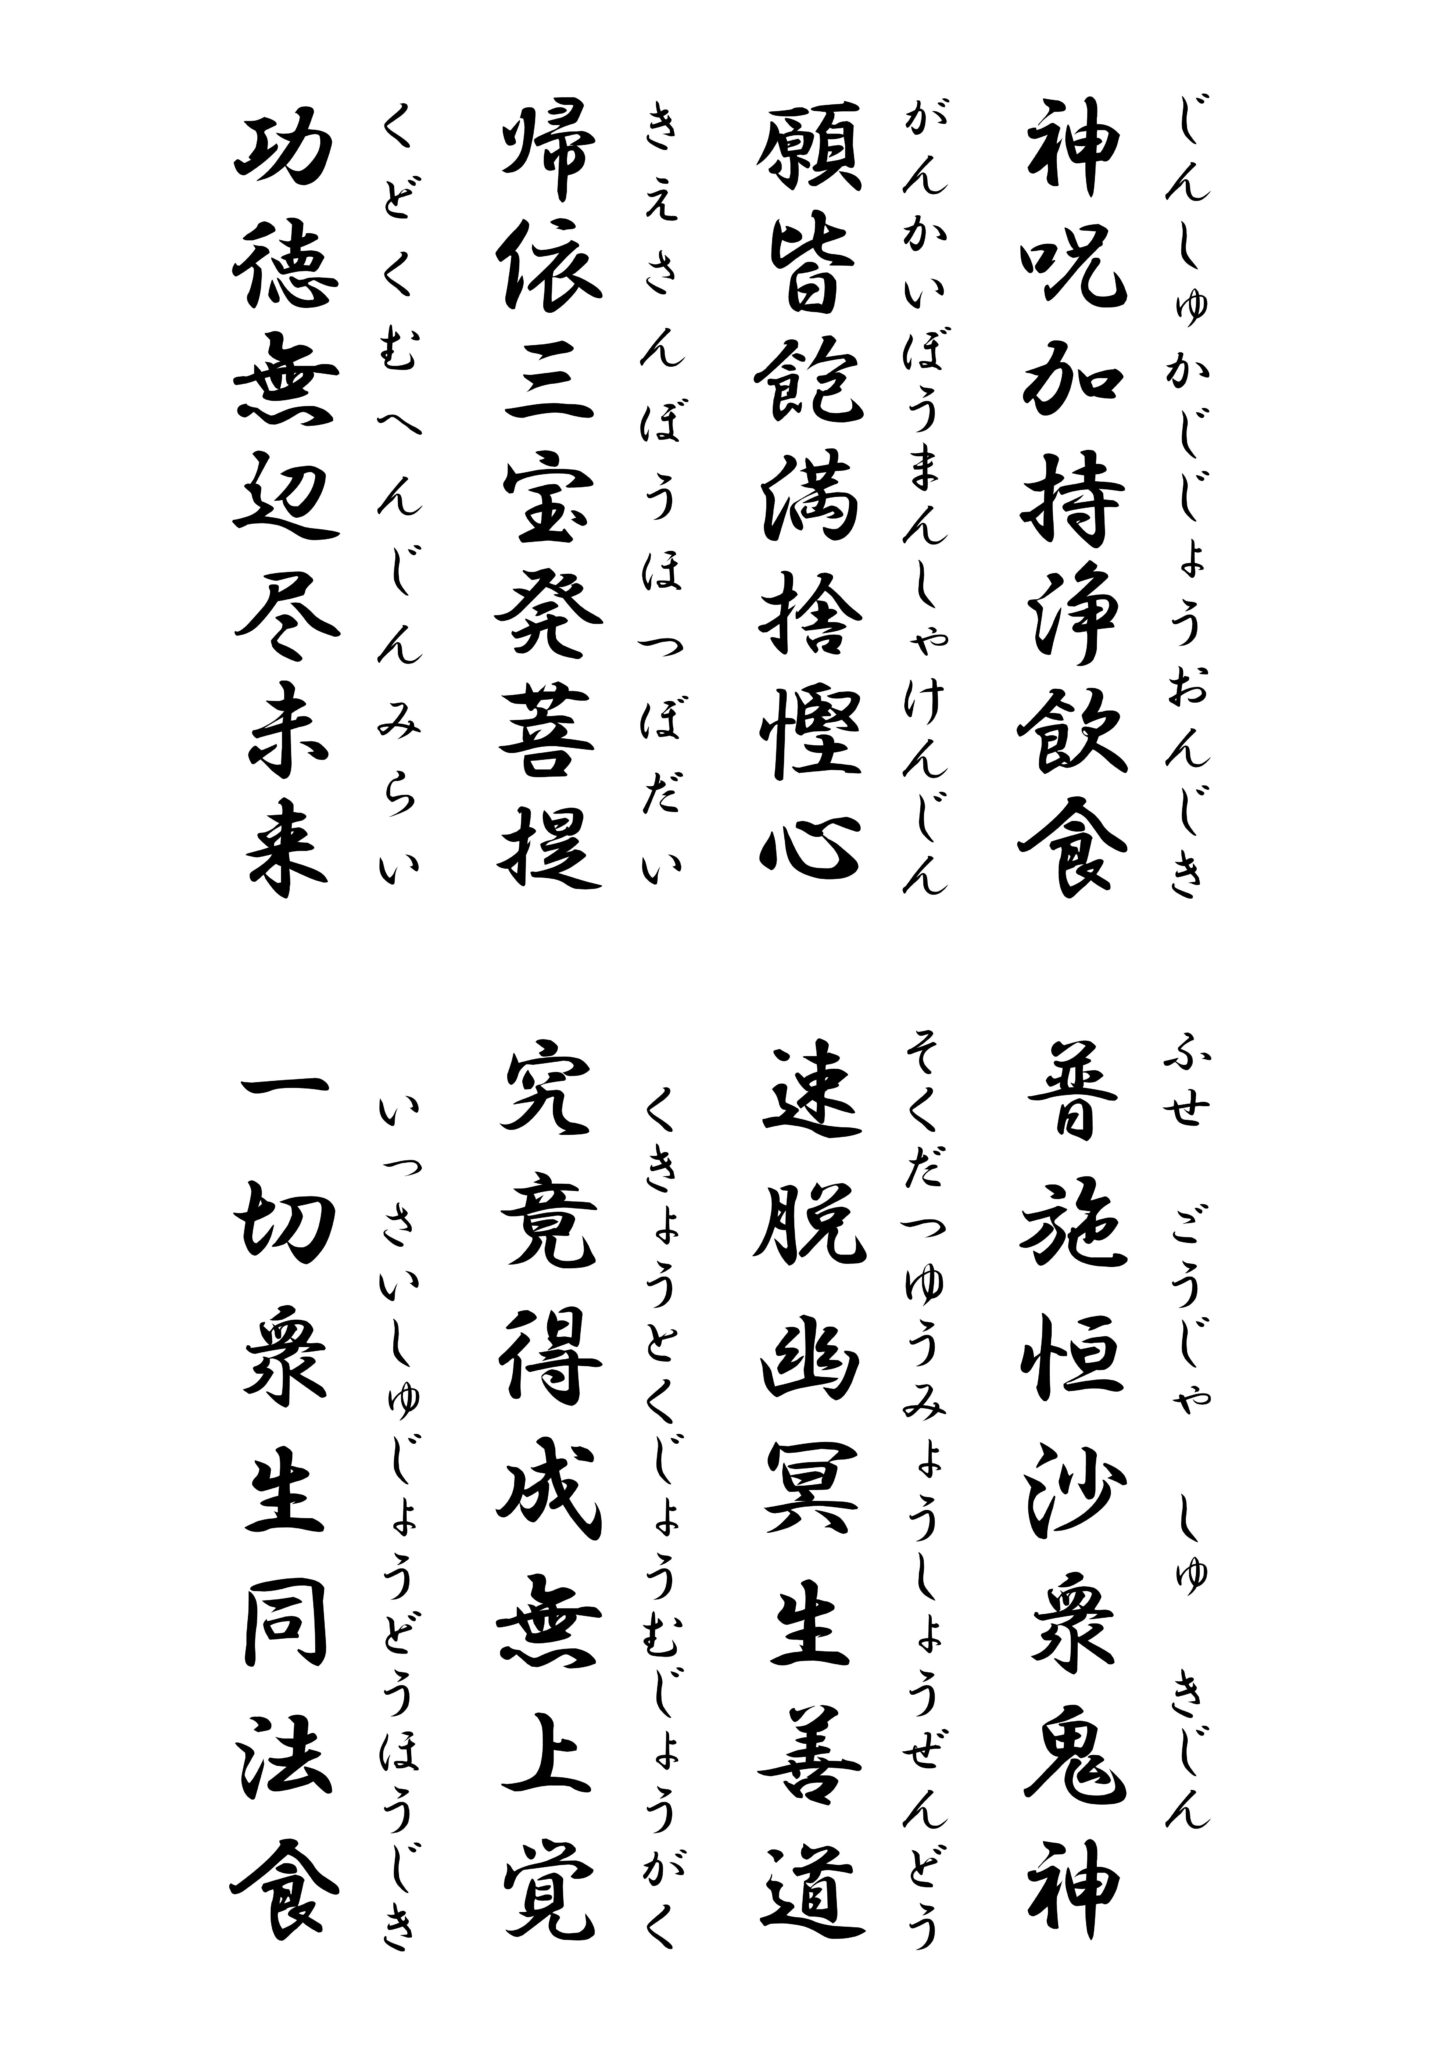 じんしゅかじじょうおんじき
神呪加持浄飲食
ふせ ごうじゃ しゅ きじん
普施恒沙衆鬼神
がんかいぼうまんしゃけんじん
願皆飽満捨慳心
そくだつゆうみょうしょうぜんどう
速脱幽冥生善道
きえさんぼうほつぼだい
帰依三宝発菩提
くきょうとくじょうむじょうがく
究竟得成無上覚
くどくむへんじんみらい
功徳無辺尽未来
いっさいしゅじょうどうほうじき
一切衆生同法食